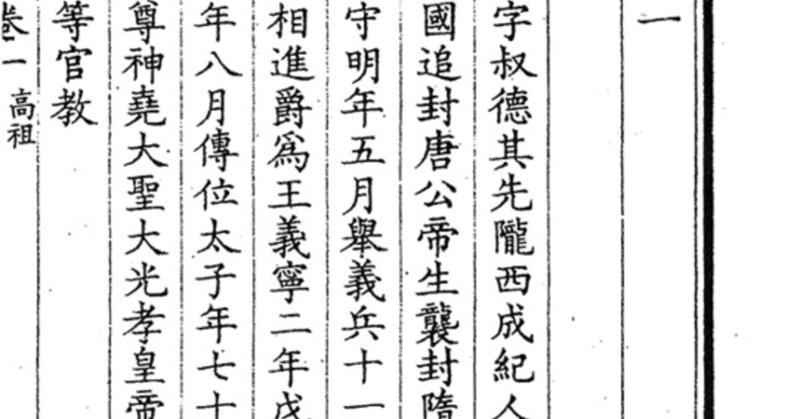 一
字叔德其先隴西成紀人
國追封唐公帝生襲封隋
守明年五月舉義兵十一
相進爵爲王義寧二年戊
年八月傳位太子年七十
尊神堯大聖大光孝皇帝
等官教
卷一 高祖